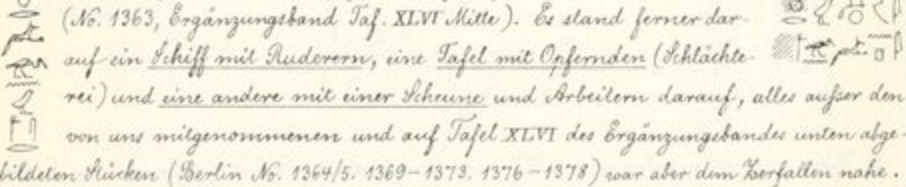 (No. 1363, Ergänzungsband Taf. XLVI Mitte). Es stand ferner dar-
auf ein Schiff mit Ruderern, eine Tafel mit Opfernden (Schlächte-
rei) und eine andere mit einer Scheune und Arbeitern darauf, alles außer den
von uns mitgenommenen und auf Tafel XLVI des Ergänzungsbandes unten abge-
bildeten Stücken (Berlin No. 1364/5. 1369-1373. 1376-1378) war aber dem Zerfallen nahe.